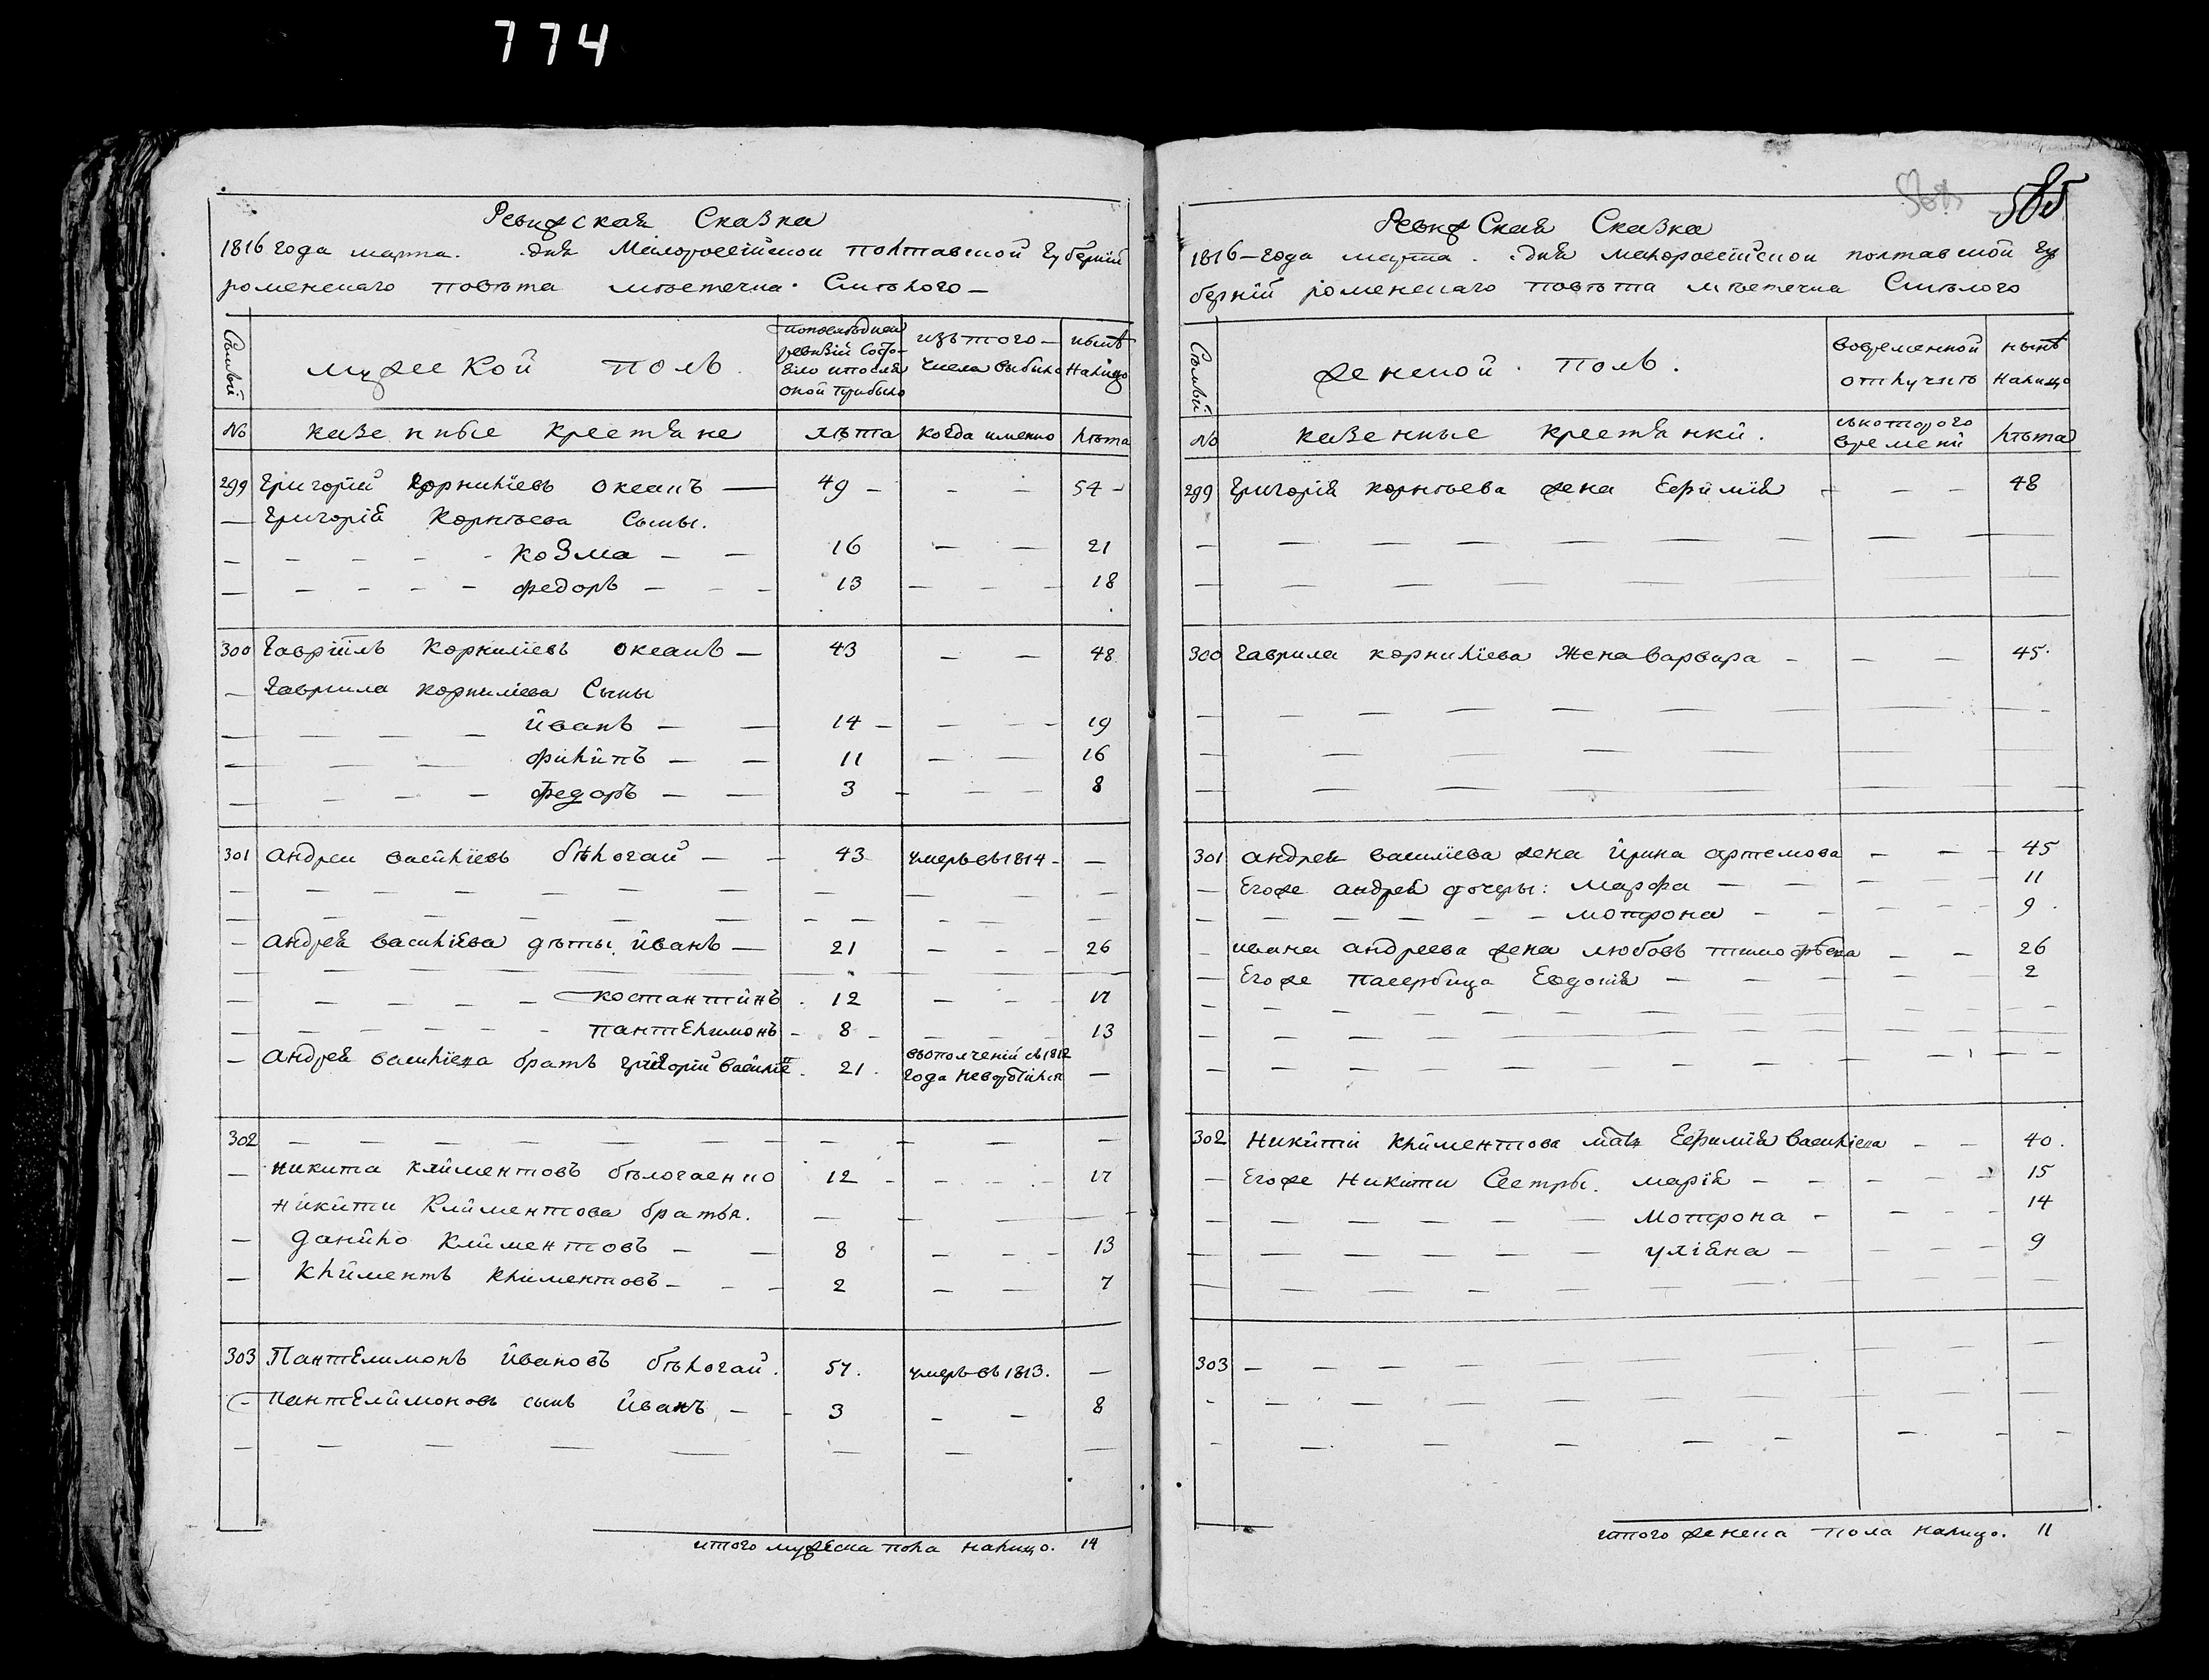 774
Ревижская Сказка
1816 года марта. дня Малороссійской полтавской Губерніи
роменскаго повѣта мѣстечка Смѣлого
Семьи
мужеской полъ
попоследней ревизіи состояло и после оной прибыло
изъ того числа выбыло
нынѣ налицо
№ казенные крестьяне лѣта когда именно лѣта
299 Григорій Корниліевъ Океанъ — 49 — — — 54
— Григорія Корнѣева Сыны.
— Козма — 16 — — 21
— федоръ — 13 — — 18
300 Гавріилъ Корниліевъ Океанъ — 43 — — 48
— Гаврила корниліева Сыны
— йванъ — 14 — — 19
— филипъ — 11 — — 16
— федоръ — 3 — — 8
301 андреи василіевъ бѣлогай — 43 умеръ въ 1814 — —
— андрея василіева дѣты. йванъ — 21 — — 26
— костантинъ. 12 — — 17
— пантелимонъ — 8 — — 13
— андрея василіева братъ григорій василіе. 21. въополченіи съ 1812 года невозвратился —
302 — — —
— никита климентовъ бѣлогаенко 12 — — 17
никити климентова братья. — — —
— данило климентовъ — 8 — — 13
— климентъ климентовъ — 2 — — 7
303 Пантелимонъ йвановъ бѣлогай. 57. умеръ въ 1813. —
— пантелимоновъ сынъ йванъ — 3 — — 8
итого мужеска пола налицо. 14
585
Ревижская Сказка
1816 — года марта. дня малороссійской полтавской гу
берніи роменскаго повѣта мѣстечка Смѣлого
Семьи
женской полъ.
вовременной отлучкѣ
нынѣ налицо
№ казенные крестьянки. съкоторого времени лѣта
299 Григорія корнѣева жена Евфимія — — — 48
300 гаврила корниліева Жена варвара — — — 45.
301 андрея василиева жена йрина артемова — — 45
— Егоже андрея дочеры: марфа — — 11
— мотрона — — 9.
— ивана андреева жена любовь тимофѣева — — 26
— Егоже пасербица Евдокія — — 2
302 никити климентова мать Евфимія василіева — — 40.
— Егоже никити Сестры. марія — — 15
— мотрона — — 14
— уліяна — — 9
303 — — —
итого женска пола налицо. 11